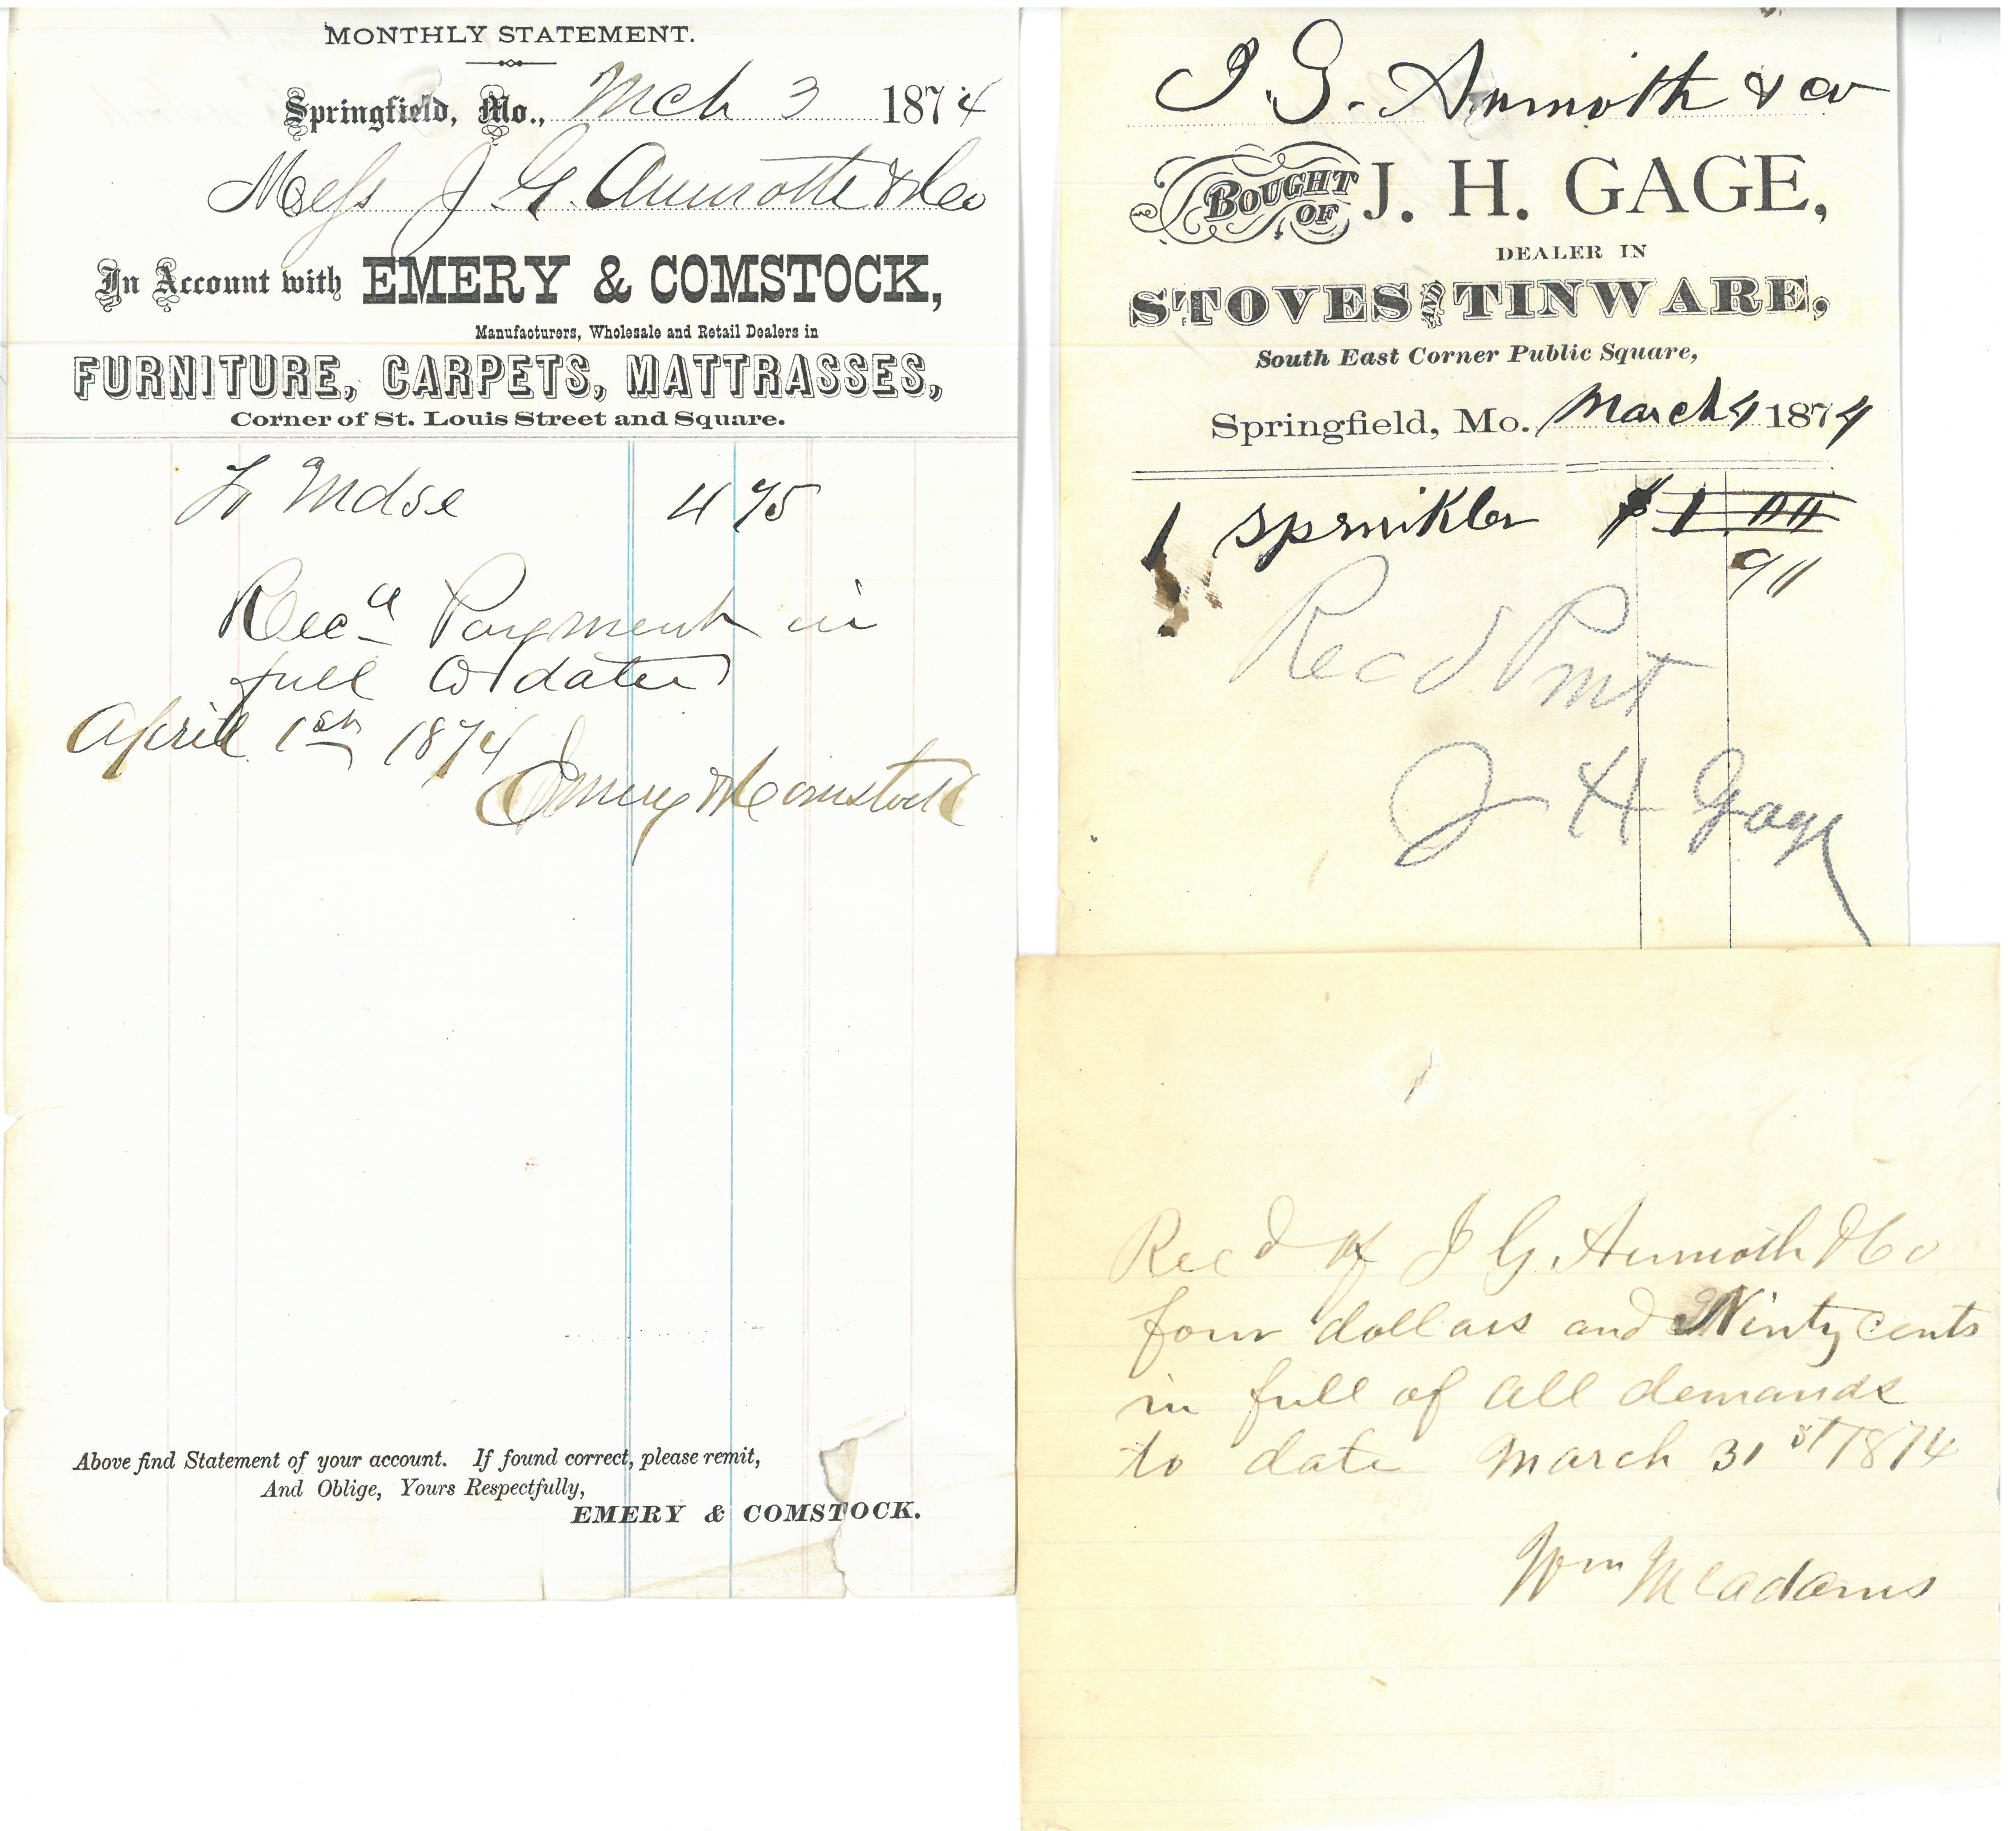 MONTHLY STATEMENT.
Springfield, Mo., Mch 3 1874
Mess J G. Aumoth & Co
In Account with EMERY & COMSTOCK,
Manufacturers, Wholesale and Retail Dealers in
FURNITURE, CARPETS, MATTRASSES,
Corner of St. Louis Street and Square.
To Mdse 4 75
Recd Payment in
full to date
April 1st 1874
Emery & Comstock
Above find Statement of your account. If found correct, please remit,
And Oblige, Yours Respectfully,
EMERY & COMSTOCK.
J. G. Aumoth & co
BOUGHT OF J. H. GAGE,
DEALER IN
STOVES AND TINWARE,
South East Corner Public Square,
Springfield, Mo. March 4 1874
1 sprinkler $1.00
90
Recd Pmt
J H Gage
Recd of J G. Aumoth & Co
four dollars and Ninty cents
in full of all demands
to date March 31st 1874
Wm McAdams